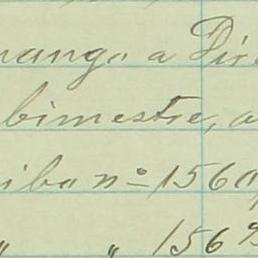 nango a Dir
bimestre, a
iba nº 1560
" " 156